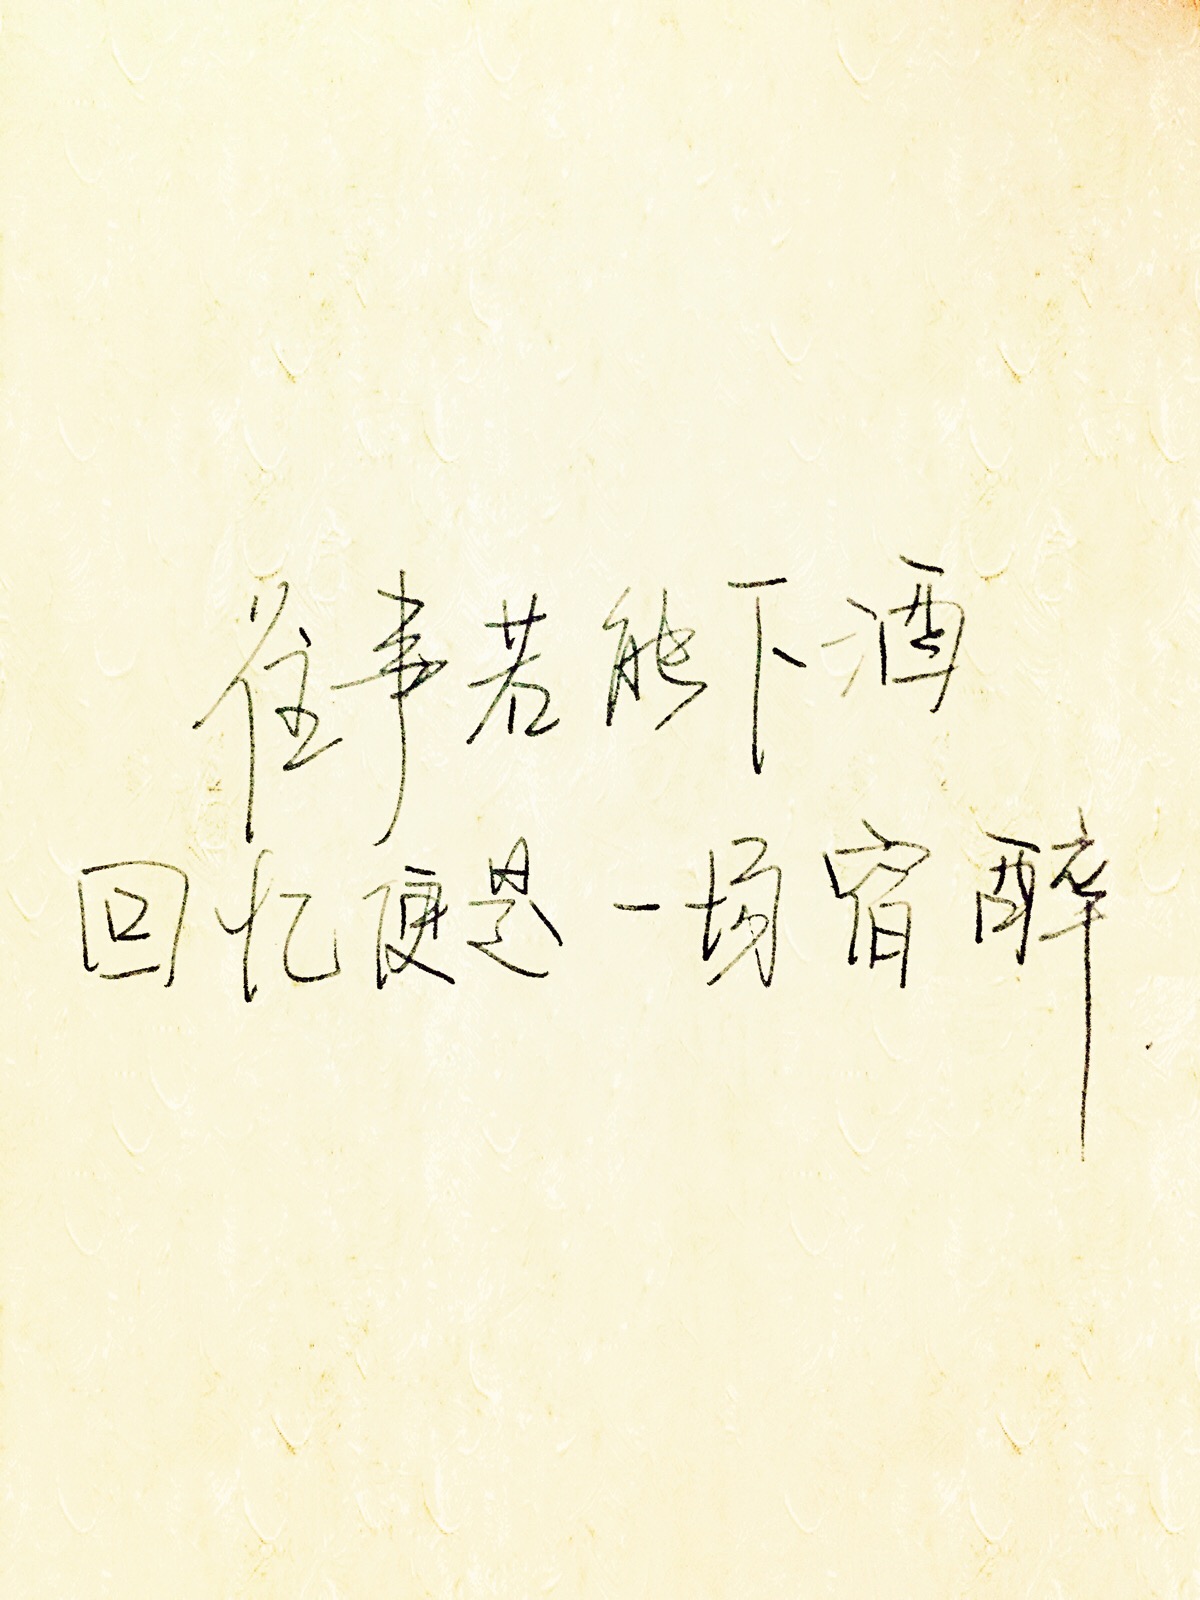 往事若能下酒
回忆便是一场宿醉